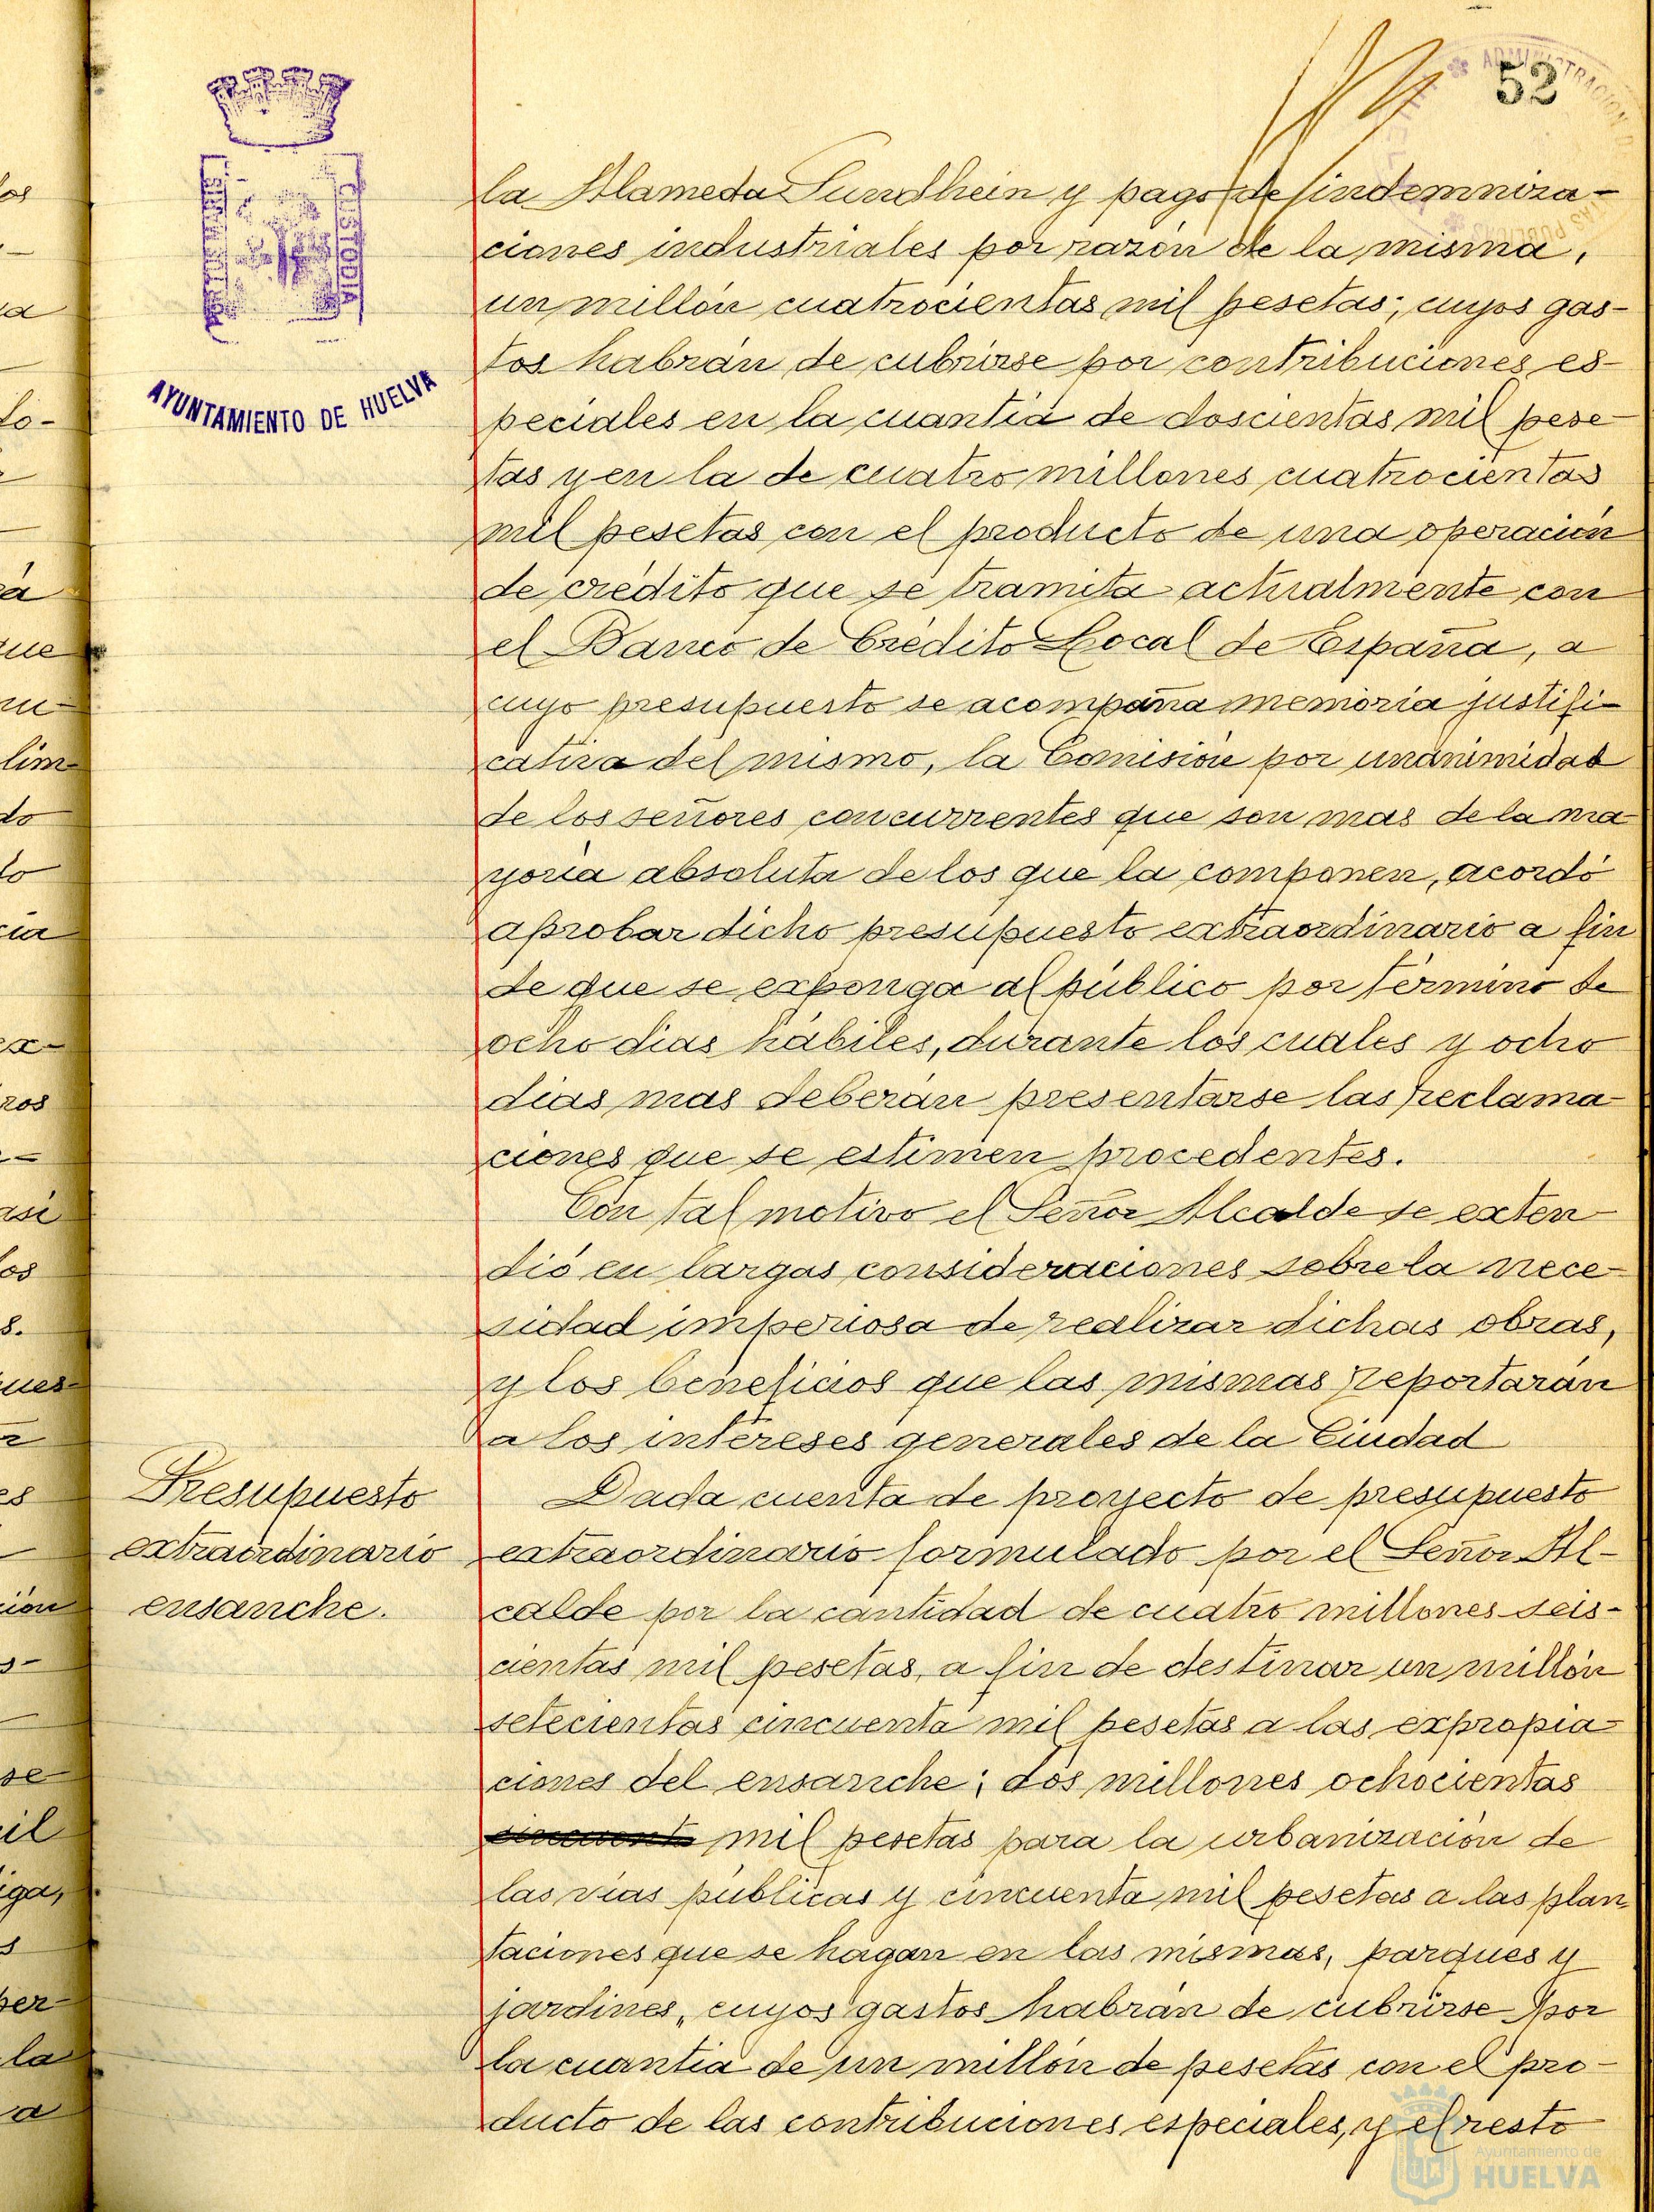 52
PORTUS MARIS
CUSTODIA
AYUNTAMIENTO DE HUELVA
la Alameda Sundhein y pago de indemniza-
ciones industriales por razón de la misma,
un millón cuatrocientas mil pesetas; cuyos gas-
tos habrán de cubrirse por contribuciones es-
peciales en la cuantía de doscientas mil pese-
tas y en la de cuatro millones cuatrocientas
mil pesetas con el producto de una operación
de crédito que se tramita actualmente con
el Banco de Crédito Local de España, a
cuyo presupuesto se acompaña memoria justifi-
cativa del mismo, la Comisión por unanimidad
de los señores concurrentes que son mas de la ma-
yoria absoluta de los que la componen, acordó
aprobar dicho presupuesto extraordinario a fin
de que se exponga al público por término de
ocho dias hábiles, durante los cuales y ocho
dias mas deberán presentarse las reclama-
ciones que se estimen procedentes.
Con tal motivo el Señor Alcalde se exten-
dió en largas consideraciones sobre la nece-
sidad imperiosa de realizar dichas obras,
y los beneficios que las mismas reportarán
a los intereses generales de la Ciudad
Presupuesto
extraordinario
ensanche.
Dada cuenta de proyecto de presupuesto
extraordinario formulado por el Señor Al-
calde por la cantidad de cuatro millones seis-
cientas mil pesetas, a fin de destinar un millón
setecientas cincuenta mil pesetas a las expropia-
ciones del ensanche; dos millones ochocientas
mil pesetas para la urbanización de
las vias públicas y cincuenta mil pesetas a las plan-
taciones que se hagan en las mismas, parques y
jardines, cuyos gastos habrán de cubrirse por
la cuantia de un millón de pesetas con el pro-
ducto de las contribuciones especiales, y el resto
Ayuntamiento de
HUELVA